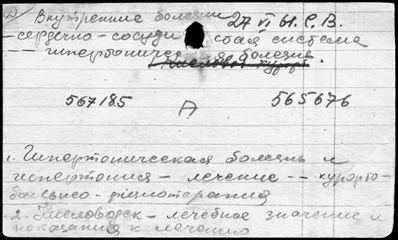 Внутренние болезни 27 VI 61. С.В.
- сердечно-сосудистая система
-- гипертоническая болезнь.
Кисловод. курорт
567185 А 565676
1. Гипертоническая болезнь и
гипертония - лечение -- курорто-
бальнео-физиотерапия
2. Кисловодск - лечебное значение и
показания к лечению